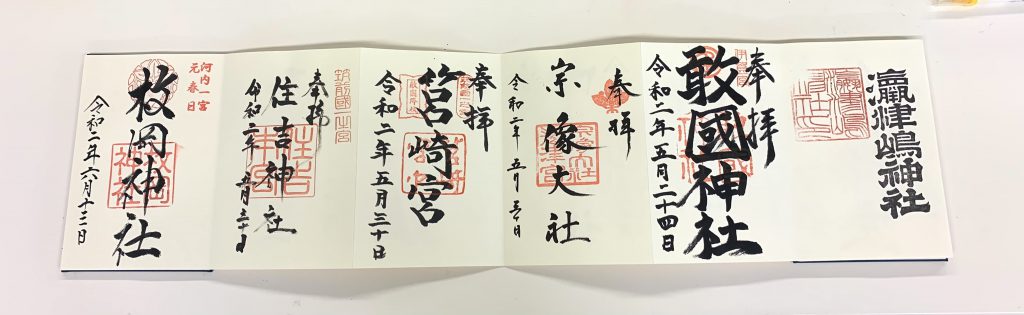 瀛津嶋神社
奉拝
敢國神社
令和二年五月二十四日
奉拝
宗像大社
令和二年五月三十日
奉拝
筥崎宮
令和二年五月三十日
筑前國一之宮
奉拝
住吉神社
令和二年五月三十日
河内一宮
元春日
枚岡神社
令和二年六月十三日